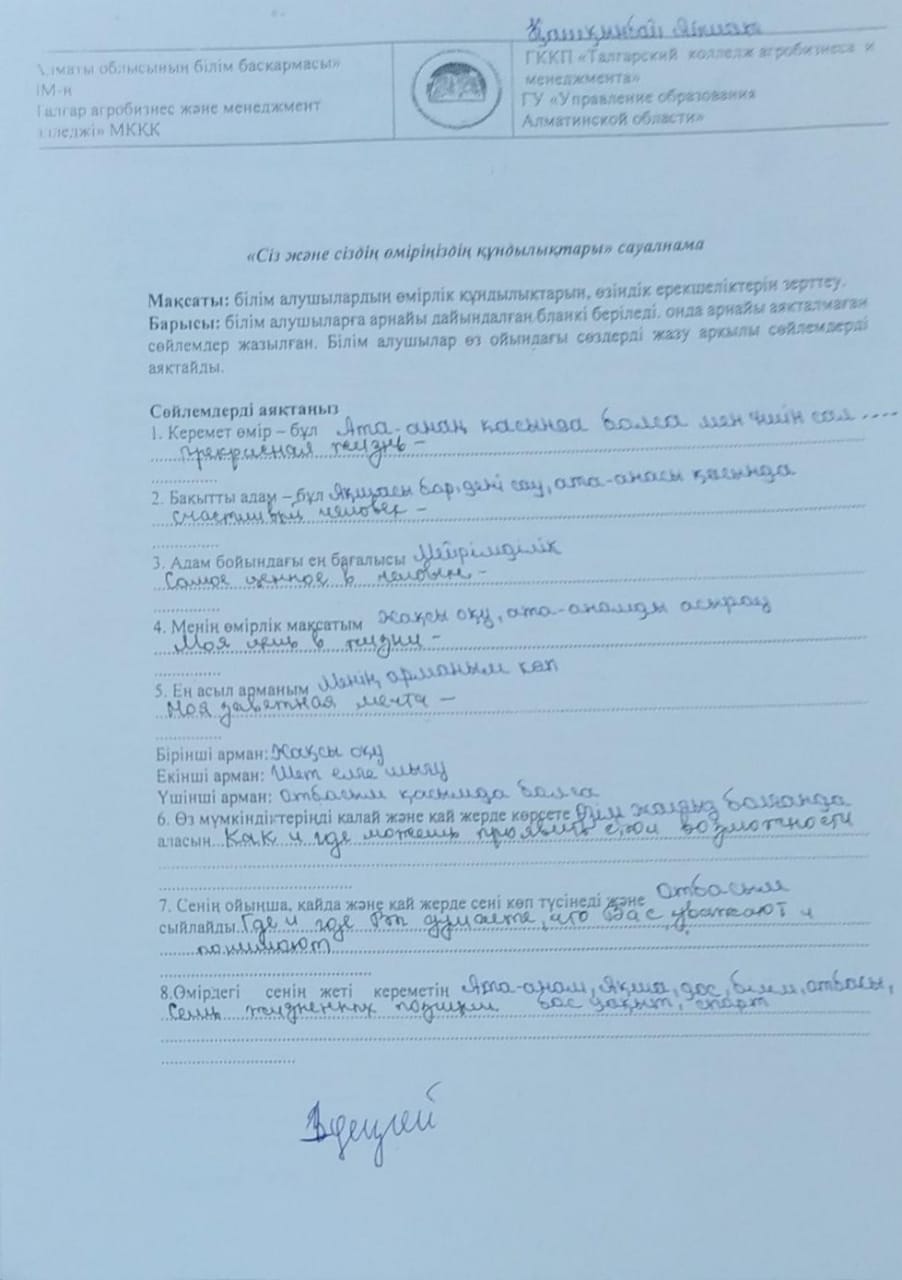 Қашқынбай
Алматы облысының білім басқармасы»
ІМ-н
Талғар агробизнес және менеджмент
колледжі» МККК
ГККП «Талгарский колледж агробизнеса и
менеджмента»
ГУ «Управление образования
Алматинской области»
«Сіз және сіздің өміріңіздің құндылықтары» сауалнама
Мақсаты: білім алушылардын өмірлік құндылықтарын, өзіндік ерекшеліктерін зерттеу.
Барысы: білім алушыларға арнайы дайындалған бланкі беріледі. онда арнайы аякталмаған
сөйлемдер жазылған. Білім алушылар өз ойындағы сөздерді жазу аркылы сөйлемдерді
аяктайды.
Сөйлемдерді аяқтаңыз
1. Керемет өмір – бұл Ата-анаң қасында болса мен үшін сол ....
прекрасная жизнь –
2. Бақытты адам – бұл Ақшасы бар, дені сау, ата-анасы қасында
счастливый человек –
3. Адам бойындағы ең бағалысы Мейрімділік
Самое ценное в человеке –
4. Менің өмірлік мақсатым жақсы оқу, ата-анамды асырау
Моя цель в жизни –
5. Ең асыл арманым Менің арманым көп
Моя заветная мечта –
Бірінші арман: Жақсы оқу
Екінші арман: Шет елге шығу
Үшінші арман: Отбасым қасымда болса
6. Өз мүмкіндіктеріңді калай және кай жерде көрсете Өзім жалғыз болғанда
аласын Как и где можешь проявить свои возможности
7. Сенің ойынша, кайда және кай жерде сені көп түсінеді және отбасым
сыйлайды Где и где Вы думаете, что Вас уважают и
понимают
8.Өмірдегі сенің жеті кереметің Ата-анам, Ақша, дос, білім, отбасы,
Семь жизненных позиций бос уақыт, спорт